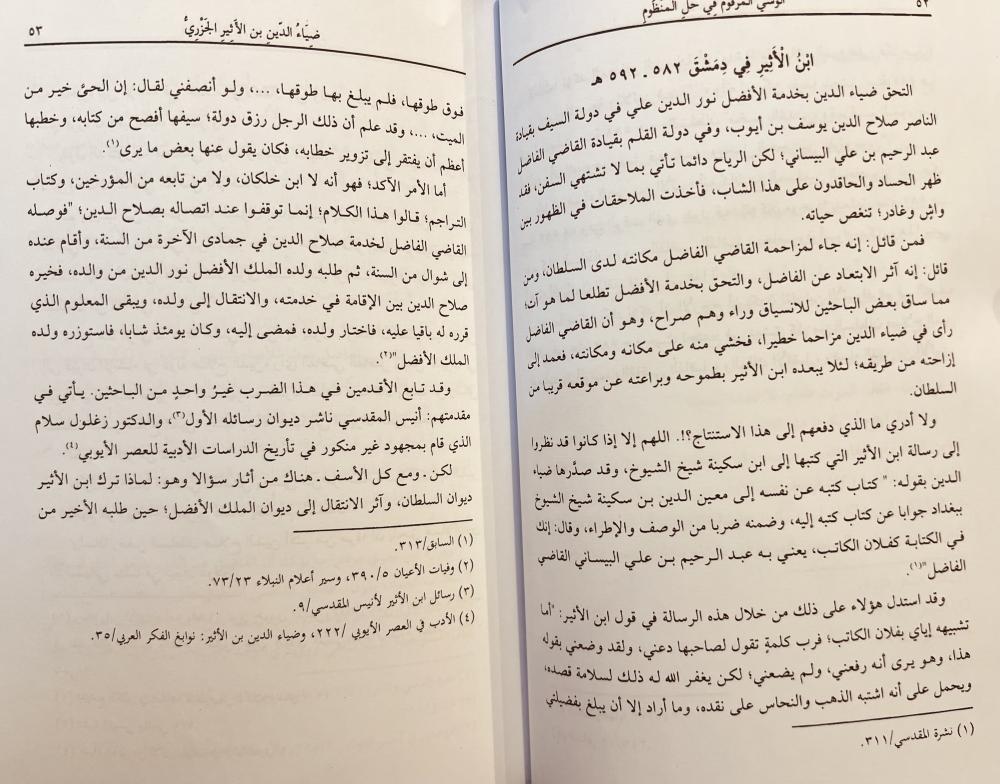 ٥٢
الوشي المرقوم في حل المنظوم
ابْنُ الْأَثِيرِ فِي دِمَشْقَ ٥٨٢ ـ ٥٩٢ هـ
التحق ضياء الدين بخدمة الأفضل نور الدين علي في دولة السيف بقيادة
الناصر صلاح الدين يوسف بن أيوب، وفي دولة القلم بقيادة القاضي الفاضل
عبد الرحيم بن علي البيساني؛ لكن الرياح دائما تأتي بما لا تشتهي السفن، فقد
ظهر الحساد والحاقدون على هذا الشاب، فأخذت الملاحقات في الظهور بين
واشٍ وغادر؛ تنغص حياته.
فمن قائل: إنه جاء لمزاحمة القاضي الفاضل مكانته لدى السلطان، ومن
قائل: إنه آثر الابتعاد عن الفاضل، والتحق بخدمة الأفضل تطلعا لما هو آت؛
مما ساق بعض الباحثين للانسياق وراء وهم صراح، وهو أن القاضي الفاضل
رأى في ضياء الدين مزاحما خطيرا، فخشي منه على مكانه ومكانته، فعمد إلى
إزاحته من طريقه؛ لئلا يبعده ابن الأثير بطموحه وبراعته عن موقعه قريبا من
السلطان.
ولا أدري ما الذي دفعهم إلى هذا الاستنتاج؟!. اللهم إلا إذا كانوا قد نظروا
إلى رسالة ابن الأثير التي كتبها إلى ابن سكينة شيخ الشيوخ، وقد صدَّرها ضياء
الدين بقوله: " كتاب كتبه عن نفسه إلى معين الدين بن سكينة شيخ الشيوخ
ببغداد جوابا عن كتاب كتبه إليه، وضمنه ضربا من الوصف والإطراء، وقال: إنك
في الكتابة كفلان الكاتب، يعني به عبد الرحيم بن علي البيساني القاضي
الفاضل"(١).
وقد استدل هؤلاء على ذلك من خلال هذه الرسالة في قول ابن الأثير: "أما
تشبيهه إياي بفلان الكاتب؛ فرب كلمةٍ تقول لصاحبها دعني، ولقد وضعني بقوله
هذا، وهو يرى أنه رفعني، ولم يضعني؛ لكن يغفر الله له ذلك لسلامة قصده،
ويحمل على أنه اشتبه الذهب والنحاس على نقده، وما أراد إلا أن يبلغ بفضيلتي
(١) نشرة المقدسي/٣١١.
ضِيَاءُ الدِّينِ بن الأَثِيرِ الجَزَرِيُّ
٥٣
فوق طوقها، فلم يبلغ بها طوقها، ...، ولو أنصفني لقال: إن الحيَّ خير من
الميت، ...، وقد علم أن ذلك الرجل رزق دولة؛ سيفها أفصح من كتابه، وخطبها
أعظم أن يفتقر إلى تزوير خطابه، فكان يقول عنها بعض ما يرى"(١).
أما الأمر الآكد؛ فهو أنه لا ابن خلكان، ولا من تابعه من المؤرخين، وكتاب
التراجم؛ قالوا هذا الكلام؛ إنما توقفوا عند اتصاله بصلاح الدين؛ "فوصله
القاضي الفاضل لخدمة صلاح الدين في جمادى الآخرة من السنة، وأقام عنده
إلى شوال من السنة، ثم طلبه ولده الملك الأفضل نور الدين من والده، فخيره
صلاح الدين بين الإقامة في خدمته، والانتقال إلى ولده، ويبقى المعلوم الذي
قرره له باقيا عليه، فاختار ولده، فمضى إليه، وكان يومئذ شابا، فاستوزره ولده
الملك الأفضل"(٢).
وقد تابع الأقدمين في هذا الضرب غيرُ واحدٍ من الباحثين. يأتي في
مقدمتهم: أنيس المقدسي ناشر ديوان رسائله الأول(٣)، والدكتور زغلول سلام
الذي قام بمجهود غير منكور في تأريخ الدراسات الأدبية للعصر الأيوبي(٤).
لكن ـ ومع كل الأسف ـ هناك من أثار سؤالا وهو: لماذا ترك ابن الأثير
ديوان السلطان، وآثر الانتقال إلى ديوان الملك الأفضل؛ حين طلبه الأخير من
(١) السابق/٣١٣.
(٢) وفيات الأعيان ٣٩٠/٥، وسير أعلام النبلاء ٧٣/٢٣.
(٣) رسائل ابن الأثير لأنيس المقدسي/٩.
(٤) الأدب في العصر الأيوبي /٢٢٢، وضياء الدين بن الأثير: نوابغ الفكر العربي/٣٥.